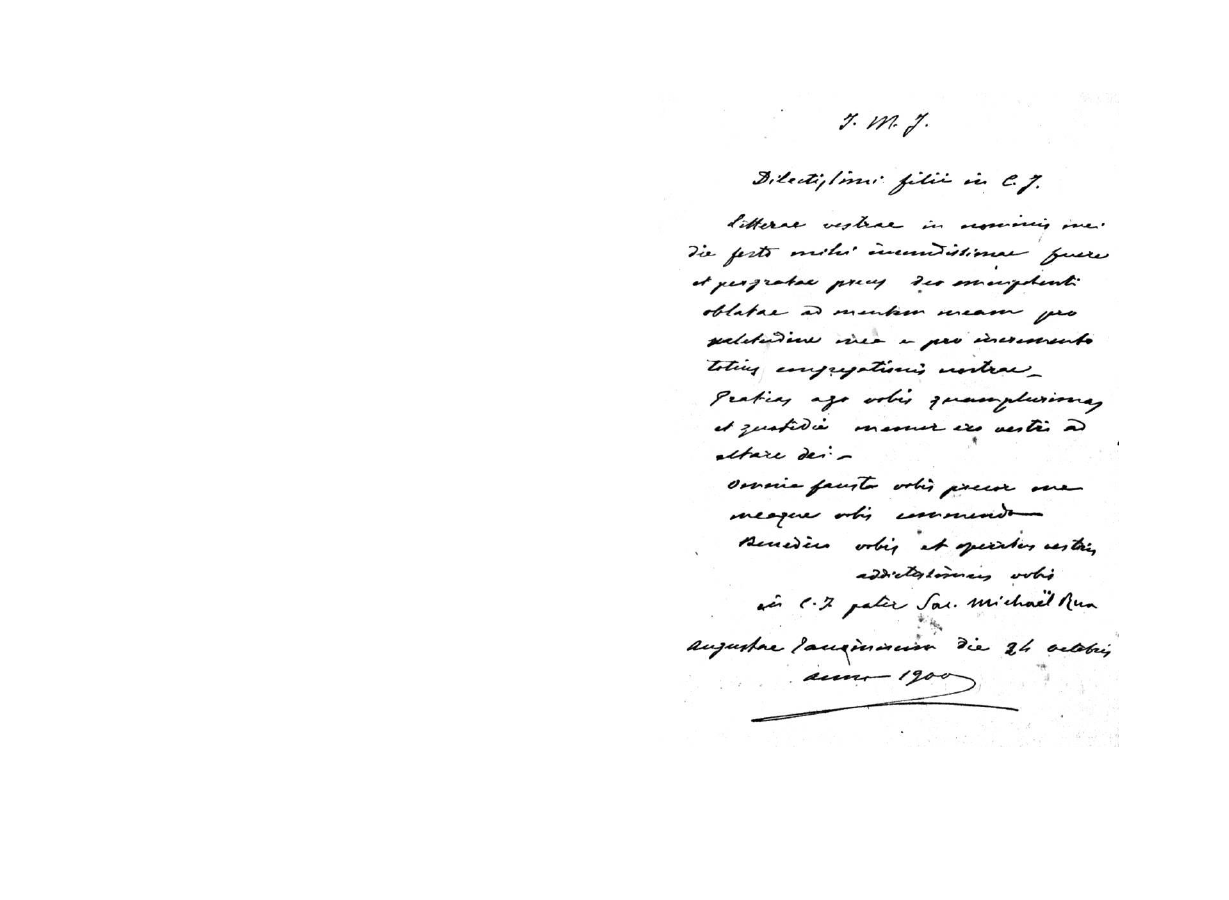 J. M. J.
Dilectissimi filii in C. J.
Litterae vestrae in nominis mei
die festo mihi iucundissimae fuere
et pergratae preces Deo omnipotenti
oblatae ad mentem meam pro
valetudine mea e pro incremento
totius congregationis nostrae_
Gratias ago vobis quamplurimas
et quotidie memor ero vestri ad
altare dei -
Omnia fausta vobis precor me
meaque vobis commendo
Benedico vobis et operibus vestris
addictissimus vobis
in C. J pater Sac. Michaël Rua
Augustae Taurinorum die 24 octobris
anno 1900